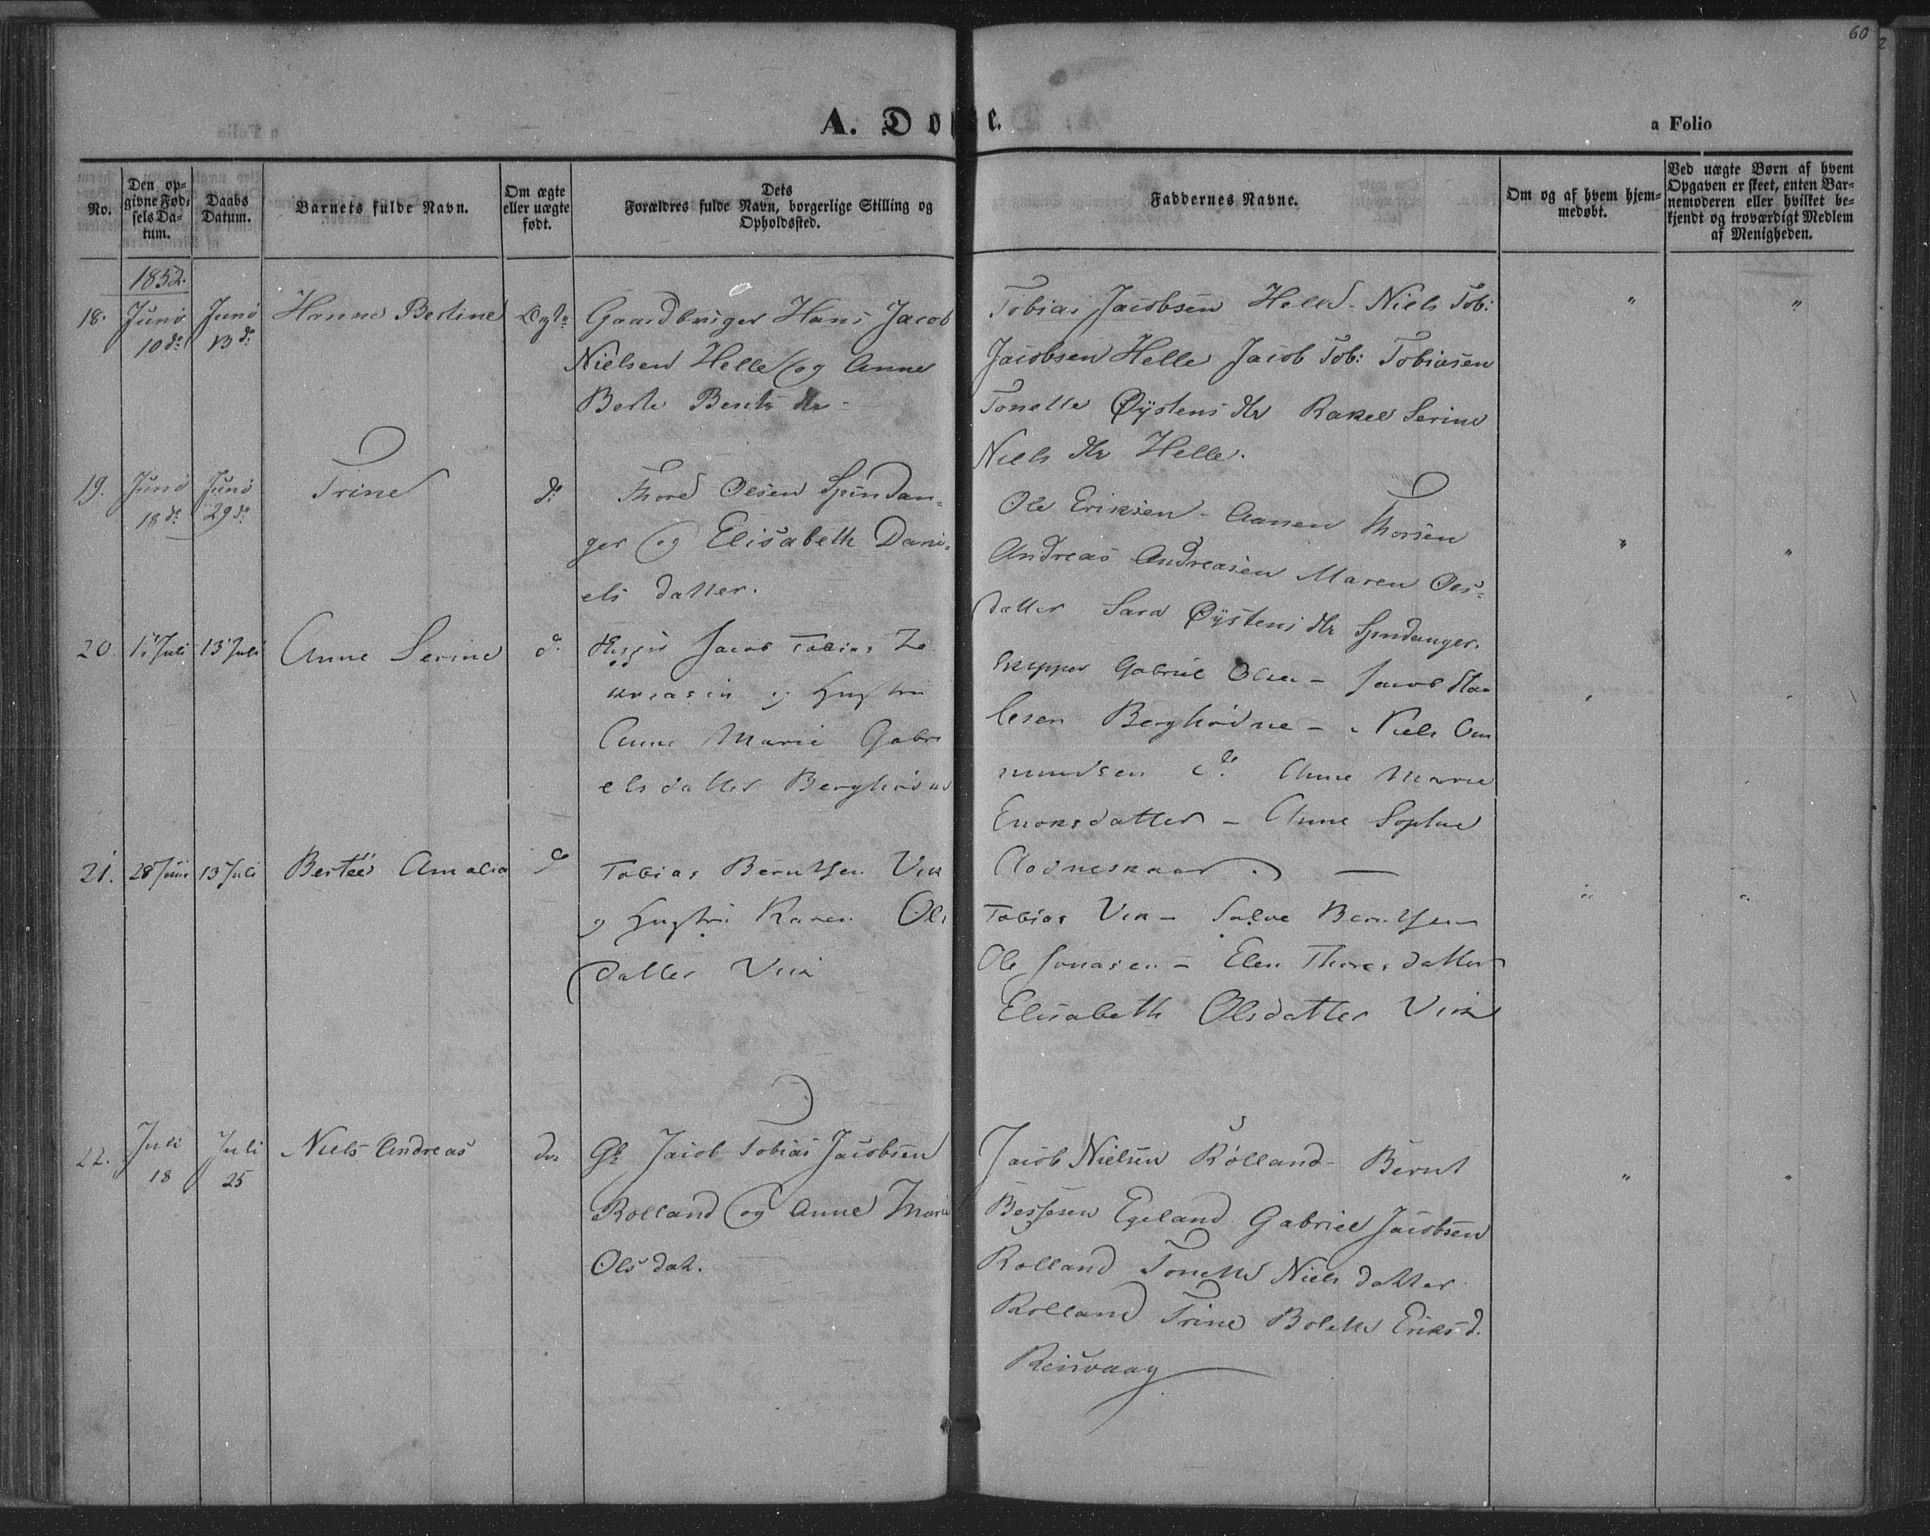 60
A. Døbte.
a Folio
No.
Den op-
givne Fød-
sels Da-
tum.
Daabs
Datum.
Barnets fulde Navn.
Om ægte
eller uægte
født.
Dets
Forældres fulde Navn, borgerlige Stilling og
Opholdssted.
Faddernes Navne.
Om og af hvem hjem-
medøbt.
Ved uægte Børn af hvem
Opgaven er skeet, enten Bar-
nemoderen eller hvilket be-
kjendt og troværdigt Medlem
af Menigheden.
1852.
18.
Juni
10de
Juni
13de
Hanne Bertine
Ægte
Gaardbruger Hans Jacob
Nielsen Helle og Anne
Berte Bents dtr
Tobias Jacobsen Helle - Niels Tob:
Jacobsen Helle Jacob Tob: Tobiasen
Tonette Øystens dtr Rakel Serine
Niels dtr Helle.
" "
19.
Juni
18de
Juni
29de
Trine
do
Thore Olsen Spindan-
ger og Elisabeth Dani-
els datter.
Ole Eriksen - Aanen Thorsen
Andreas Andreasen Maren Ols-
datter Sara Øystens dtr Spindanger.
" "
20
Juli
13 Juli
Anne Serine
do
Jacob Tobias Za
og Hustru
Anne Marie Gabri
elsdatter Berghødne
Skipper Gabriel Olsen - Jacob
lesen Berghødne - Niels Om
mundsen do Anne Marie
Enoksdatter - Anne Sophie
Aodneskaar. —
21.
28 Juni
13 Juli
Amalia
do
Tobias Berntsen Vik
og Hustru Karen Ols
datter Viik
Tobias Vik - Salve Berntsen
Ole Jonasen - Elen Thoresdatter
Elisabeth Olsdatter Viik
" "
22.
Juli
18
Juli
25
Niels Andreas
do
Gb Jacob Tobias Jacobsen
Rolland og Anne Marie
Olsdat.
Jacob Nielsen Rolland - Bernt
Egeland Gabriel Jacobsen
Rolland Tonette Niels datter
Rolland Trine Bolette Eriksd.
Reisvaag
" "